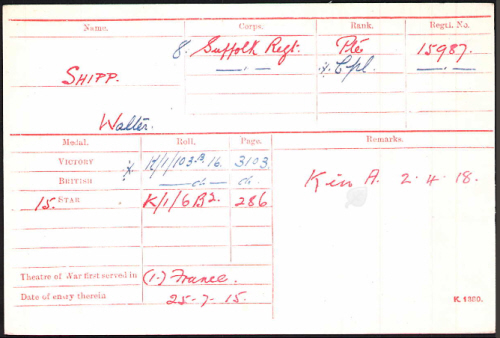 Name. Corps. Rank. Regtl. No.
8. Suffolk Regt. Pte 15987.
SHIPP. —"— Cpl. —"—
Walter.
Medal. Roll. Page. Remarks.
VICTORY K/1/103.B.16. 3103
BRITISH —do— do
15. STAR K/1/6B2. 286
Kin A. 2-4-18.
Theatre of War first served in (1.) France.
Date of entry therein 25-7-15.
K. 1380.